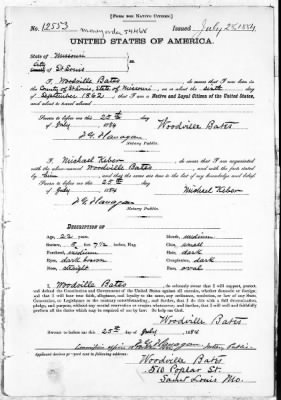 [FORM FOR NATIVE CITIZEN.]
No. 12553 Issued July 28 1884
UNITED STATES OF AMERICA.
State of Missouri
City
County of St Louis } ss:
I, Woodville Bates, do swear that I was born in the
County of St Louis, State of Missouri, on or about the sixth day
of September 1862, that I am a Native and Loyal Citizen of the United States,
and about to travel abroad
Sworn to before me this 25th day
of July 1884 Woodville Bates
J G Flanagan
Notary Public.
I, Michael Kiber, do swear that I am acquainted
with the above-named Woodville Bates, and with the facts stated
by him, and that the same are true to the best of my knowledge and belief.
Sworn to before me this 25th day
of July 1884 Michael Kiber
J G Flanagan
Notary Public.
DESCRIPTION OF
Age, 22 years. Mouth, medium
Stature, 5 feet 7½ inches, Eng. Chin, small
Forehead, medium Hair, dark
Eyes, dark brown Complexion, dark
Nose, straight Face, oval
I, Woodville Bates, do solemnly swear that I will support, protect
and defend the Constitution and Government of the United States against all enemies, whether domestic or foreign,
and that I will bear true faith, allegiance, and loyalty to the same, any ordinance, resolution, or law of any State,
Convention, or Legislature to the contrary notwithstanding; and further, that I do this with a full determination,
pledge, and purpose, without any mental reservation or evasion whatsoever; and further, that I will well and faithfully
perform all the duties which may be required of me by law. So help me God.
Woodville Bates
Sworn to before me this 25th day of July 1884
J G Flanagan Notary Public
Applicant desires passport sent to following address:
Woodville Bates
510 Poplar St.
Saint Louis Mo.